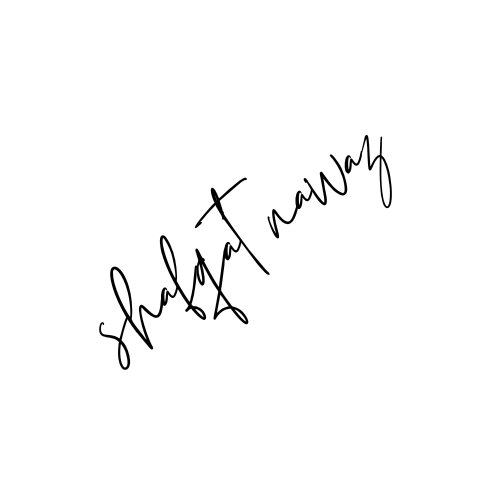 shafqat nawaz